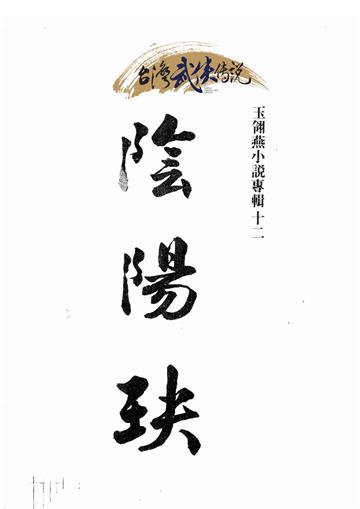 台灣武俠傳説
玉翎燕小説專輯十二
陰陽玦